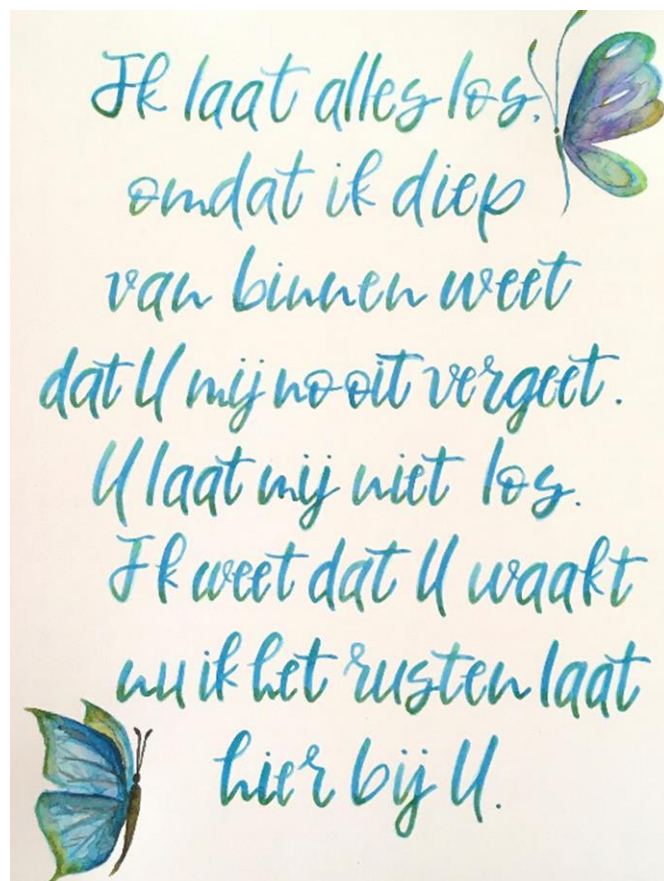 Ik laat alles los,
omdat ik diep
van binnen weet
dat U mij nooit vergeet.
U laat mij niet los.
Ik weet dat U waakt
nu ik het rusten laat
hier bij U.